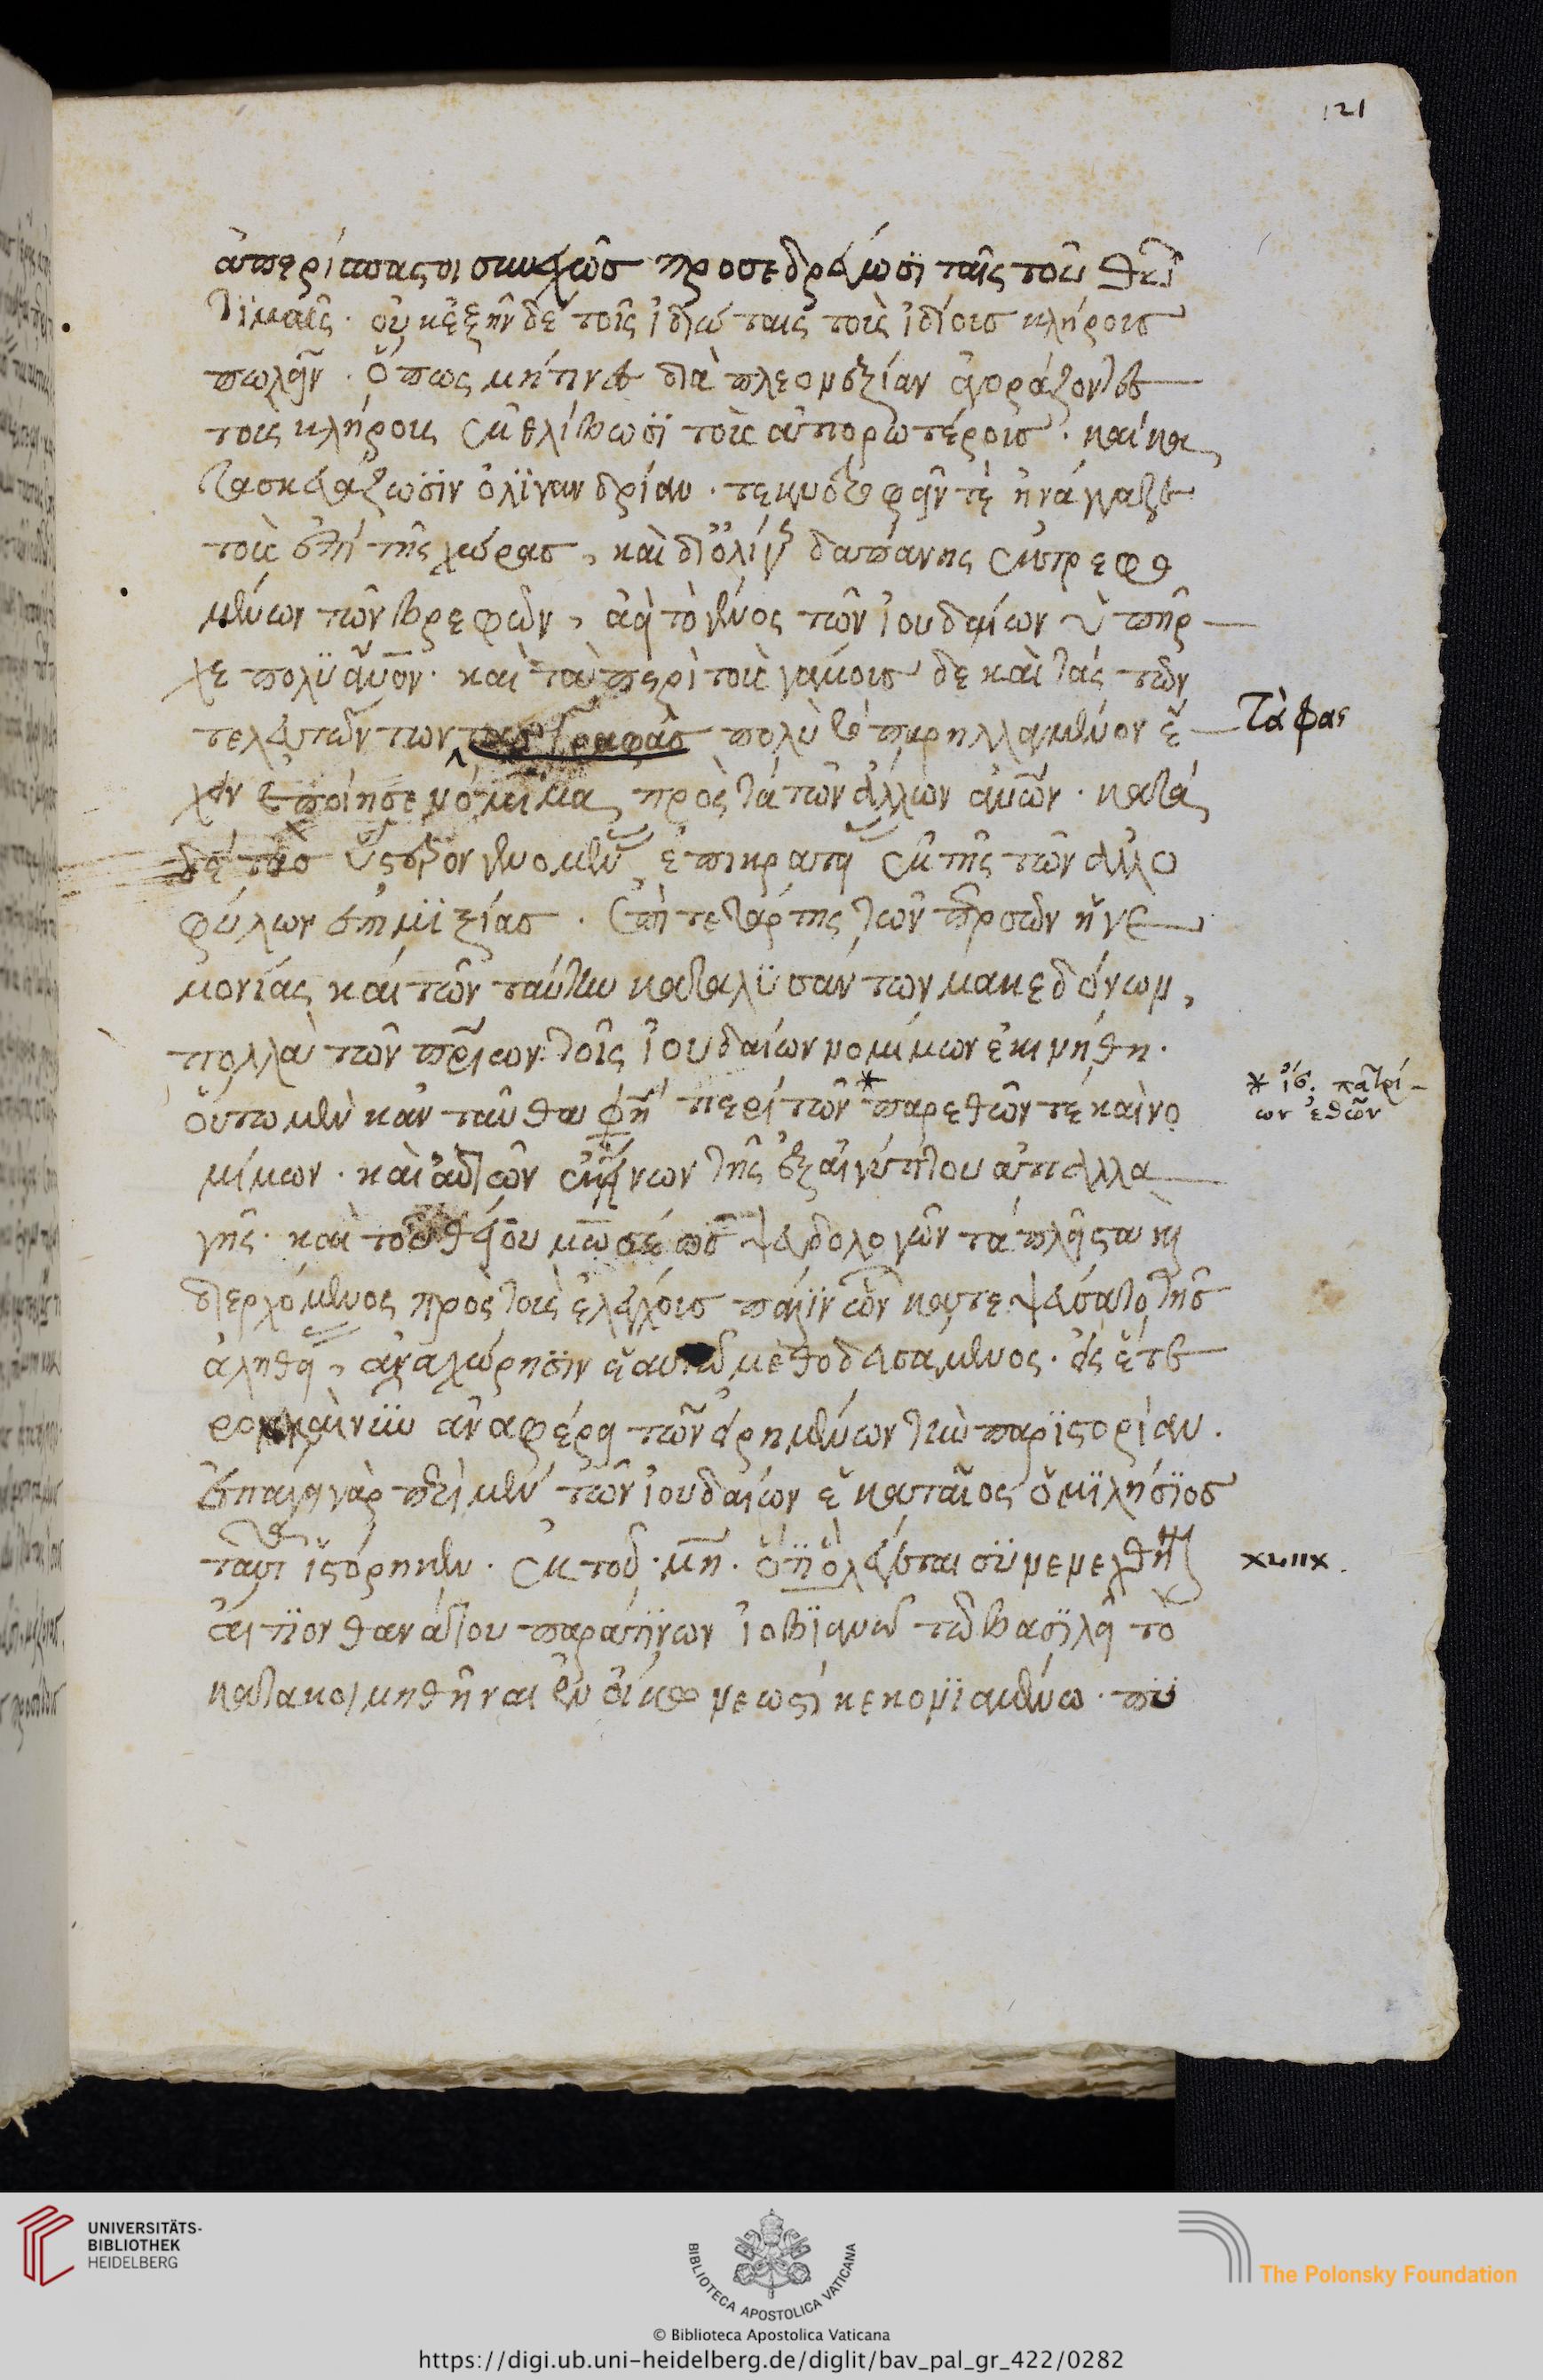 121
ἀπερίσπαστοι συνεχῶς προσεδρεύωσι ταῖς τοῦ θεοῦ
τιμαῖς. οὐκ ἐξῆν δὲ τοῖς ἰδιώταις τοὺς ἰδίους κλήρους
πωλεῖν. ὅπως μή τινες διὰ πλεονεξίαν ἀγοράζοντες
τοὺς κλήρους ἐκθλίβωσι τοὺς ἀπορωτέρους. καὶ κα
τασκευάζωσιν ὀλιγανδρίαν. τεκνοτροφεῖν τὲ ἠνάγκαζε
τοὺς ἐπὶ τῆς χώρας, καὶ δι' ὀλίγης δαπάνης ἐκτρεφο
μένων τῶν βρεφῶν, ἀεὶ τὸ γένος τῶν ἰουδαίων ὑπῆρ
χε πολυάνθρωπον. καὶ τὰ περὶ τοὺς γάμους δὲ καὶ τὰς τῶν
τελευτώντων γραφὰς πολὺ τὸ παρηλλαγμένον ἔ
τάφας
χειν ἐποίησε νόμιμα πρὸς τὰ τῶν ἄλλων ἀνθρώπων. κατὰ
δὲ τὰς ὕστερον γενομένας ἐπικρατείας ἐκ τῆς τῶν ἀλλο
φύλων ἐπιμιξίας. ἐπὶ τετάρτης τῶν περσῶν ἡγε
μονίας καὶ τῶν ταύτην καταλυσάντων μακεδόνων,
πολλὰ τῶν πατρίων τοῖς ἰουδαίων νομίμων ἐκινήθη.
οὕτω μὲν κἀνταῦθα φησὶ περὶ τῶν παρ' ἐθῶν τὲ καὶ νο
* ἴσ. πατρί-
ων ἐθῶν
μίμων. καὶ αὐτῶν ἐκείνων τῆς ἐξ αἰγύπτου ἀπαλλα
γῆς. καὶ τοῦ θείου μωσέως ψευδολογῶν τὰ πλεῖστα καὶ
διερχόμενος πρὸς τοὺς ἐλέγχους πάλιν ὧν κατεψεύσατο τῆς
ἀληθείας, ἀναχώρησιν ἑαυτῷ μεθοδευσάμενος. εἰς ἕτε
ρον ἀναφέρει τῶν εἰρημένων τὴν παριστορίαν.
ἐπάγει γὰρ περὶ μὲν τῶν ἰουδαίων ἑκαταῖος ὁ μιλήσιος
ταῦτα ἱστόρηκεν. ἐκ τοῦ μη. ὅτι
XLIIX.
αἴτιον θανάτου παραίτιον τῷ βασιλεῖ τὸ
κατακοιμηθῆναι ἐν οἴκῳ νεωστὶ κεκονιαμένῳ. πυ
UNIVERSITÄTS-
BIBLIOTHEK
HEIDELBERG
BIBLIOTECA APOSTOLICA VATICANA
The Polonsky Foundation
© Biblioteca Apostolica Vaticana
https://digi.ub.uni-heidelberg.de/diglit/bav_pal_gr_422/0282